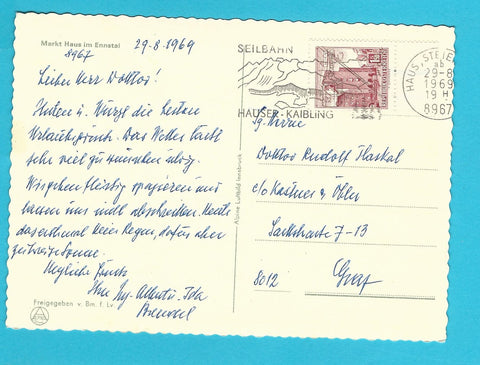 Markt Haus im Ennstal
8967
29-8-1969
Lieber Herr Doktor!
Ihnen u. die besten
Urlaubsgrüsse. Das Wetter läßt
sehr viel zu wünschen übrig.
Wir gehen fleißig spazieren und
lassen uns nicht abschrecken. Heute
das erstemal kein Regen, dafür aber
zeitweise Sonne.
Herzliche Grüsse
Ihre Ida
Freigegeben v. Bm. f. Lv.
Alpine Luftbild Innsbruck
SEILBAHN
HAUSER-KAIBLING
HAUS, STEIER
29-8
1969
19 H
8967
Doktor Rudolf
c/o Kastner & Öhler
Sackstrasse 7-13
8012 Graz